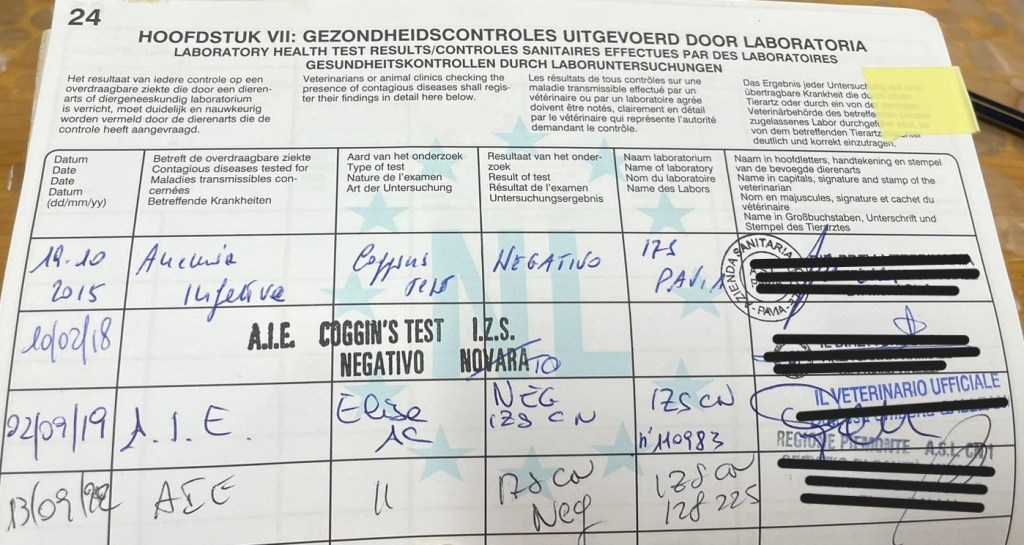 24
HOOFDSTUK VII: GEZONDHEIDSCONTROLES UITGEVOERD DOOR LABORATORIA
LABORATORY HEALTH TEST RESULTS/CONTROLES SANITAIRES EFFECTUES PAR DES LABORATOIRES
GESUNDHEITSKONTROLLEN DURCH LABORUNTERSUCHUNGEN
Het resultaat van iedere controle op een
overdraagbare ziekte die door een dieren-
arts of diergeneeskundig laboratorium
is verricht, moet duidelijk en nauwkeurig
worden vermeld door de dierenarts die de
controle heeft aangevraagd.
Veterinarians or animal clinics checking the
presence of contagious diseases shall regis-
ter their findings in detail here below.
Les résultats de tous contrôles sur une
maladie transmissible effectué par un
vétérinaire ou par un laboratoire agrée
doivent être notés, clairement en détail
par le vétérinaire qui représente l'autorité
demandant le contrôle.
Das Ergebnis jeder Untersuchung auf
übertragbare Krankheit die
Tierartz oder durch ein von der
Veterinärbehörde des betreffenden
zugelassenes Labor
von dem betreffenden Tierartz
deutlich und korrekt einzutragen.
Datum
Date
Date
Datum
(dd/mm/yy)
Betreft de overdraagbare ziekte
Contagious diseases tested for
Maladies transmissibles con-
cernées
Betreffende Krankheiten
Aard van het onderzoek
Type of test
Nature de l'examen
Art der Untersuchung
Resultaat van het onder-
zoek
Result of test
Résultat de l'examen
Untersuchungsergebnis
Naam laboratorium
Name of laboratory
Nom du laboratoire
Name des Labors
Naam in hoofdletters, handtekening en stempel
van de bevoegde dierenarts
Name in capitals, signature and stamp of the
veterinarian
Nom en majuscules, signature et cachet du
vétérinaire
Name in Großbuchstaben, Unterschrift und
Stempel des Tierarztes
NL
19.10
2015
Anemia
Infetiva
Coggins
TEST
NEGATIVO
IZS
PAVIA
AZIENDA SANITARIA
PAVIA
10/02/18
A.I.E. COGGIN'S TEST I.Z.S.
NEGATIVO NOVARA TO
02/09/19
A.I.E.
Elisa
AC
NEG
IZS CN
IZS CN
n° 110983
IL VETERINARIO UFFICIALE
REGIONE PIEMONTE A.S.L. CN1
13/09/22
AIE
11
IZS CN
Neg
IZS CN
128 225